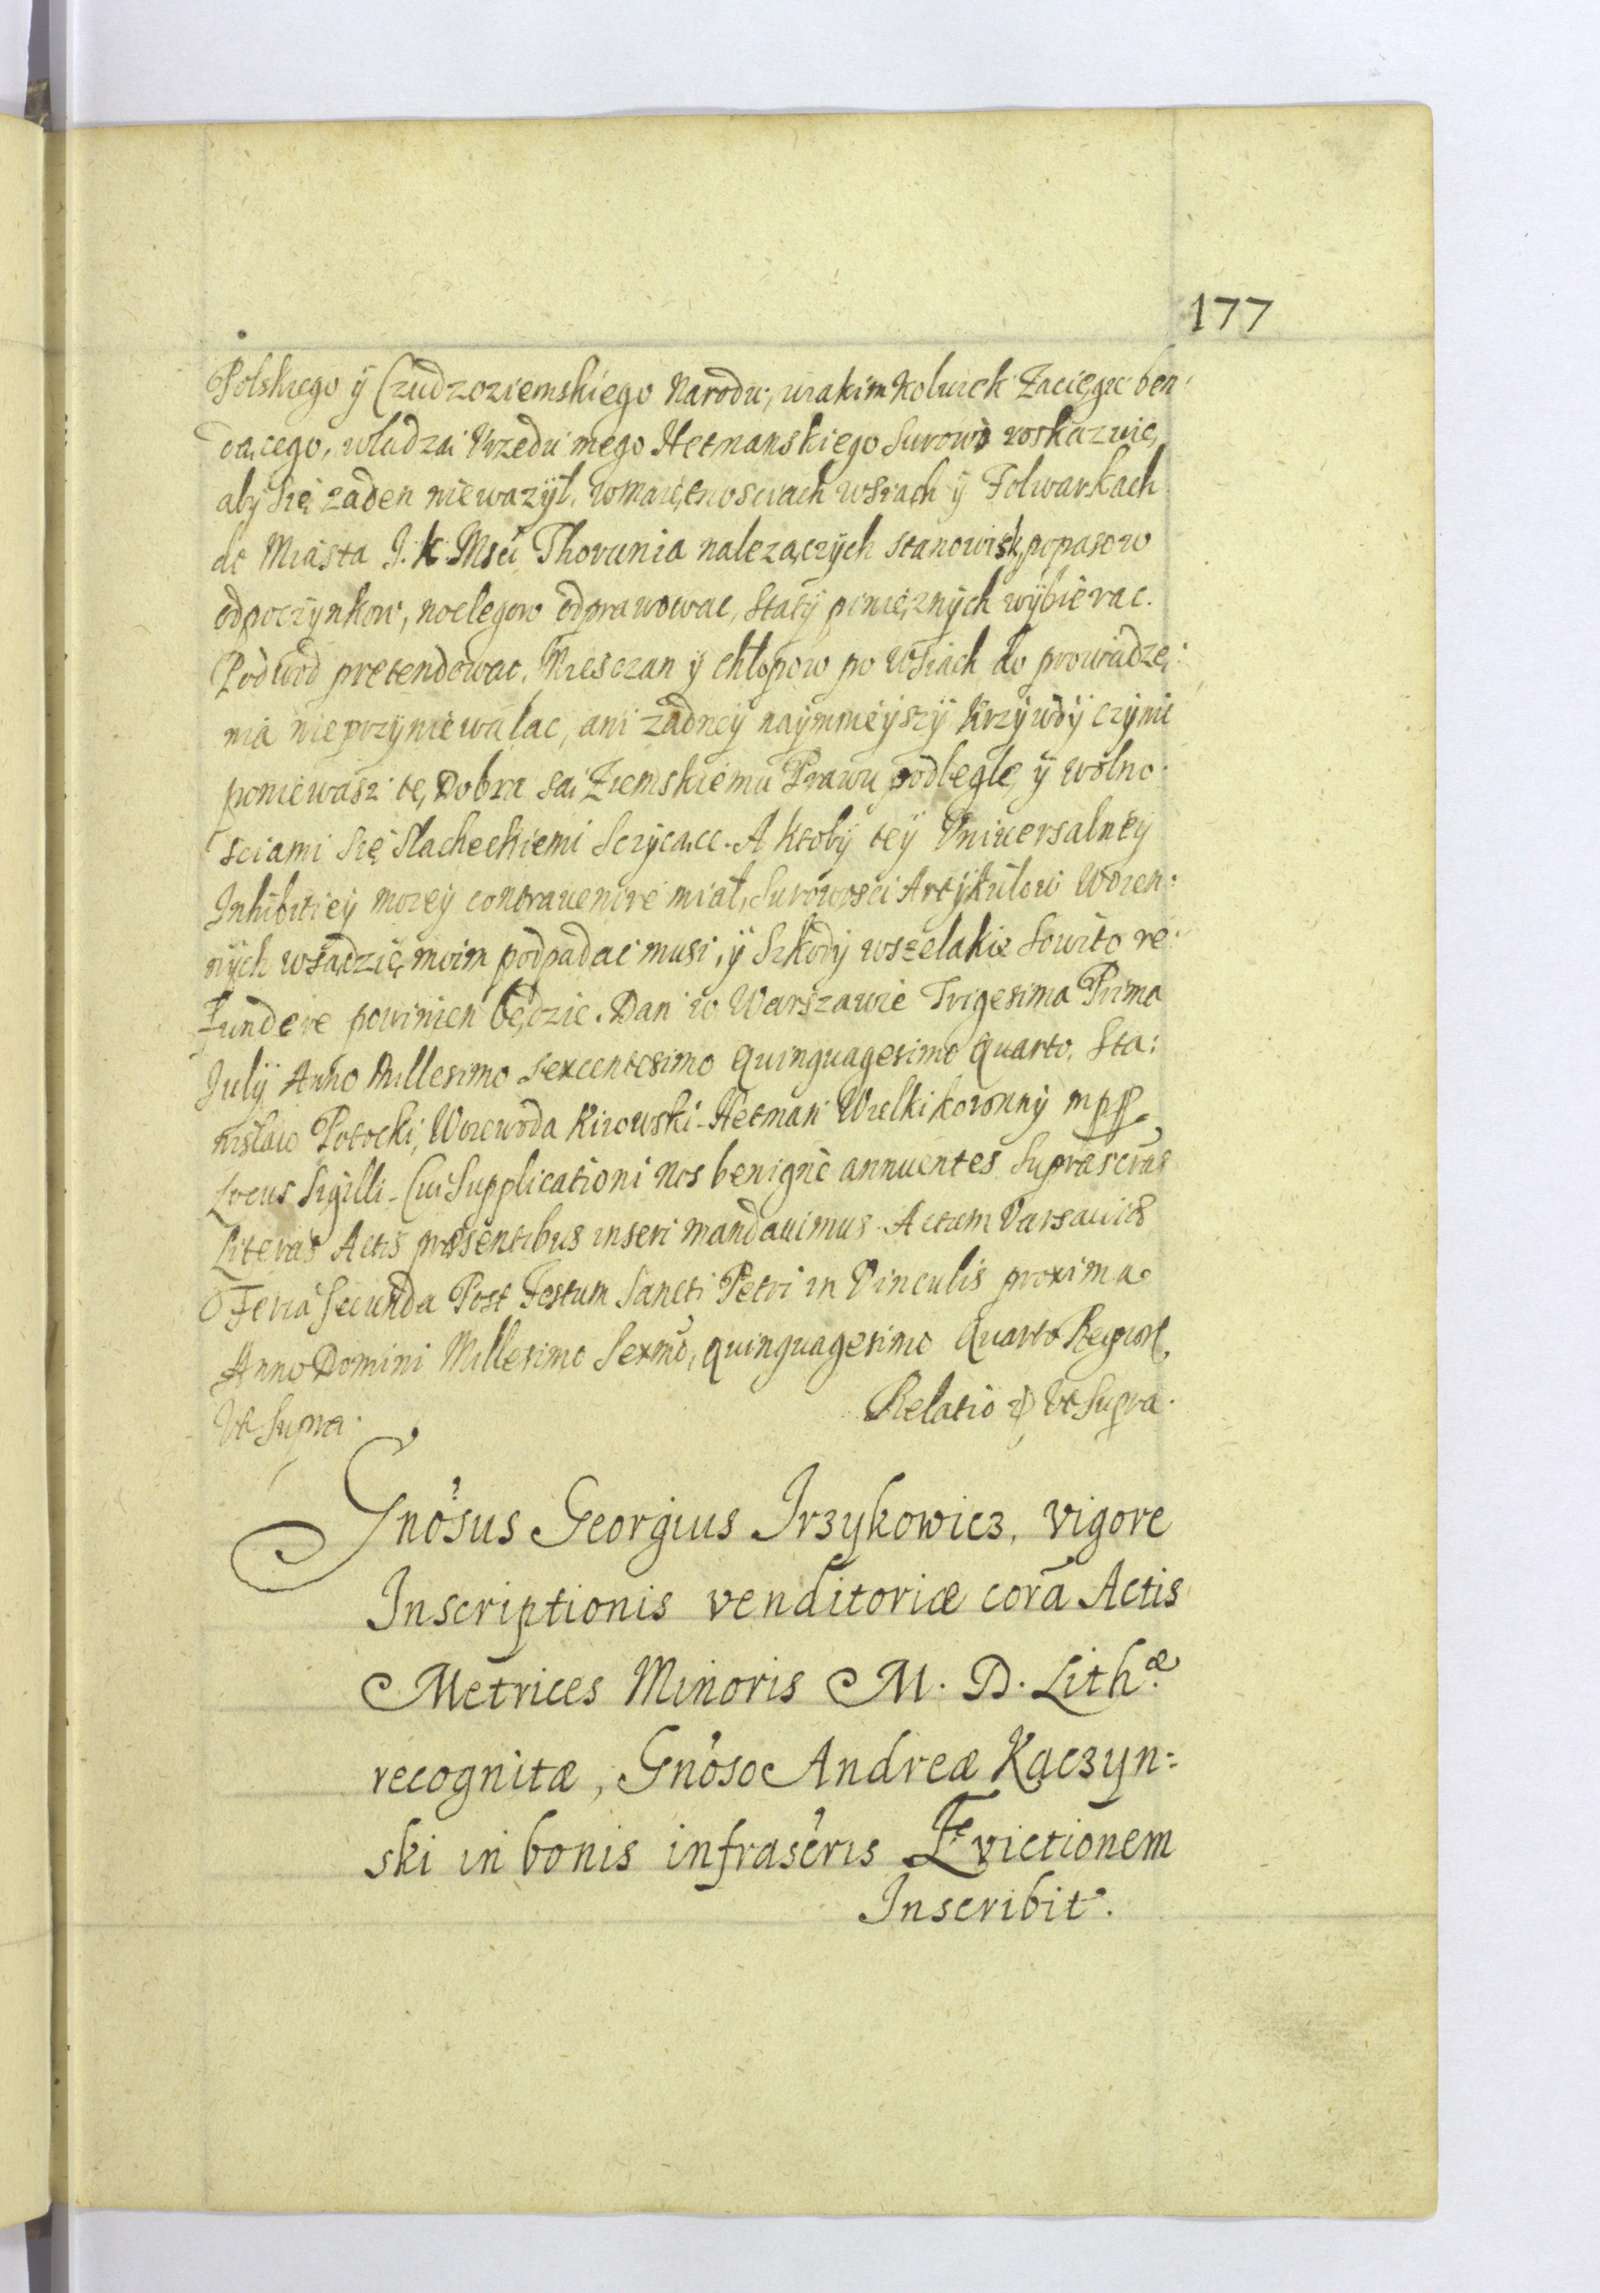 177
Polskiego ÿ Czudzoziemskiego Narodu, wiakimkolwiek Zacięgu ben:
dącego, władzą Vrzedu mego Hetmanskiego Surowo roskazuię,
aby się zaden niewazÿł, w maiętnosciach wsiach ÿ Folwarkach
do Miasta J. K. Msci Thorunia nalezączÿch stanowisk, popasow
odpoczÿnkow, noclegow odprawowac, Stacÿ pienięznÿch wÿbierac.
Podwod pretendowac, Miesczan ÿ chłopow po wsiach do prowadze:
nia nieprzÿniewalac, ani zadneÿ naÿmnieÿszÿ Krzÿwdÿ czÿnic
poniewasz te, Dobra są Ziemskiemu Prawu podlegle, ÿ wolno:
sciami się Slacheckiemi Sczÿcące. A ktobÿ teÿ Vniuersalneÿ
Inhibitieÿ moieÿ contrauenire miał, Surowosci Artÿkułow Woien:
nÿch wsądzię moim podpadac musi, ÿ Szkodÿ wszelakie Sowito re:
fundere powinien będzie. Dan w Warszawie Trigesima Prima
Julÿ Anno Millesimo Sexcentesimo Quinquagesimo Quarto. Sta:
nisław Potocki, Woiewoda Kiiowski Hetman Wielki koronnÿ mpp
Locus Sigilli. Cui Supplicationi Nos benigne annuentes Suprascras
Literas Actis præsentibus inseri mandauimus. Actum Varsauiæ
Feria Secunda Post Festum Sancti Petri in Vinculis proxima
Anno Domini Millesimo Sexmo, quinquagesimo Quarto Regnor
Vt Supra. Relatio Vt Supra.
Gnosus Georgius Jrzykowicz, vigore
Inscriptionis venditoriæ corā Actis
Metrices Minoris M. D. Lithæ.
recognitæ, Gnoso Andreæ Kaczyn=
ski in bonis infrascris Evictionem
Inscribit.